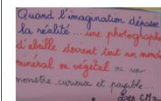 Quand l'imagination dépasse
la réalité... une photographie
d'abeille devient tout un monde
minéral ou végétal ou un
monstre curieux et paisible...
Les CM2